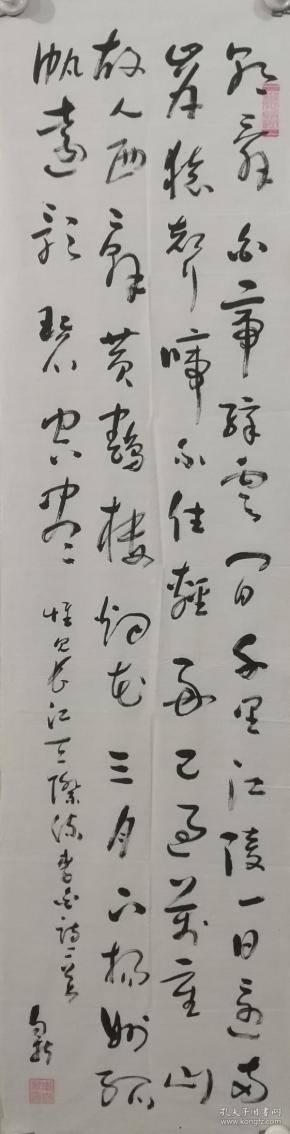 朝辭白帝彩雲間千里江陵一日還兩
岸猿聲啼不住輕舟已過萬重山
故人西辭黃鶴樓烟花三月下揚州孤
帆遠影碧空盡惟見長江天際流李白詩二首
孔夫子旧书网
www.kongfz.com